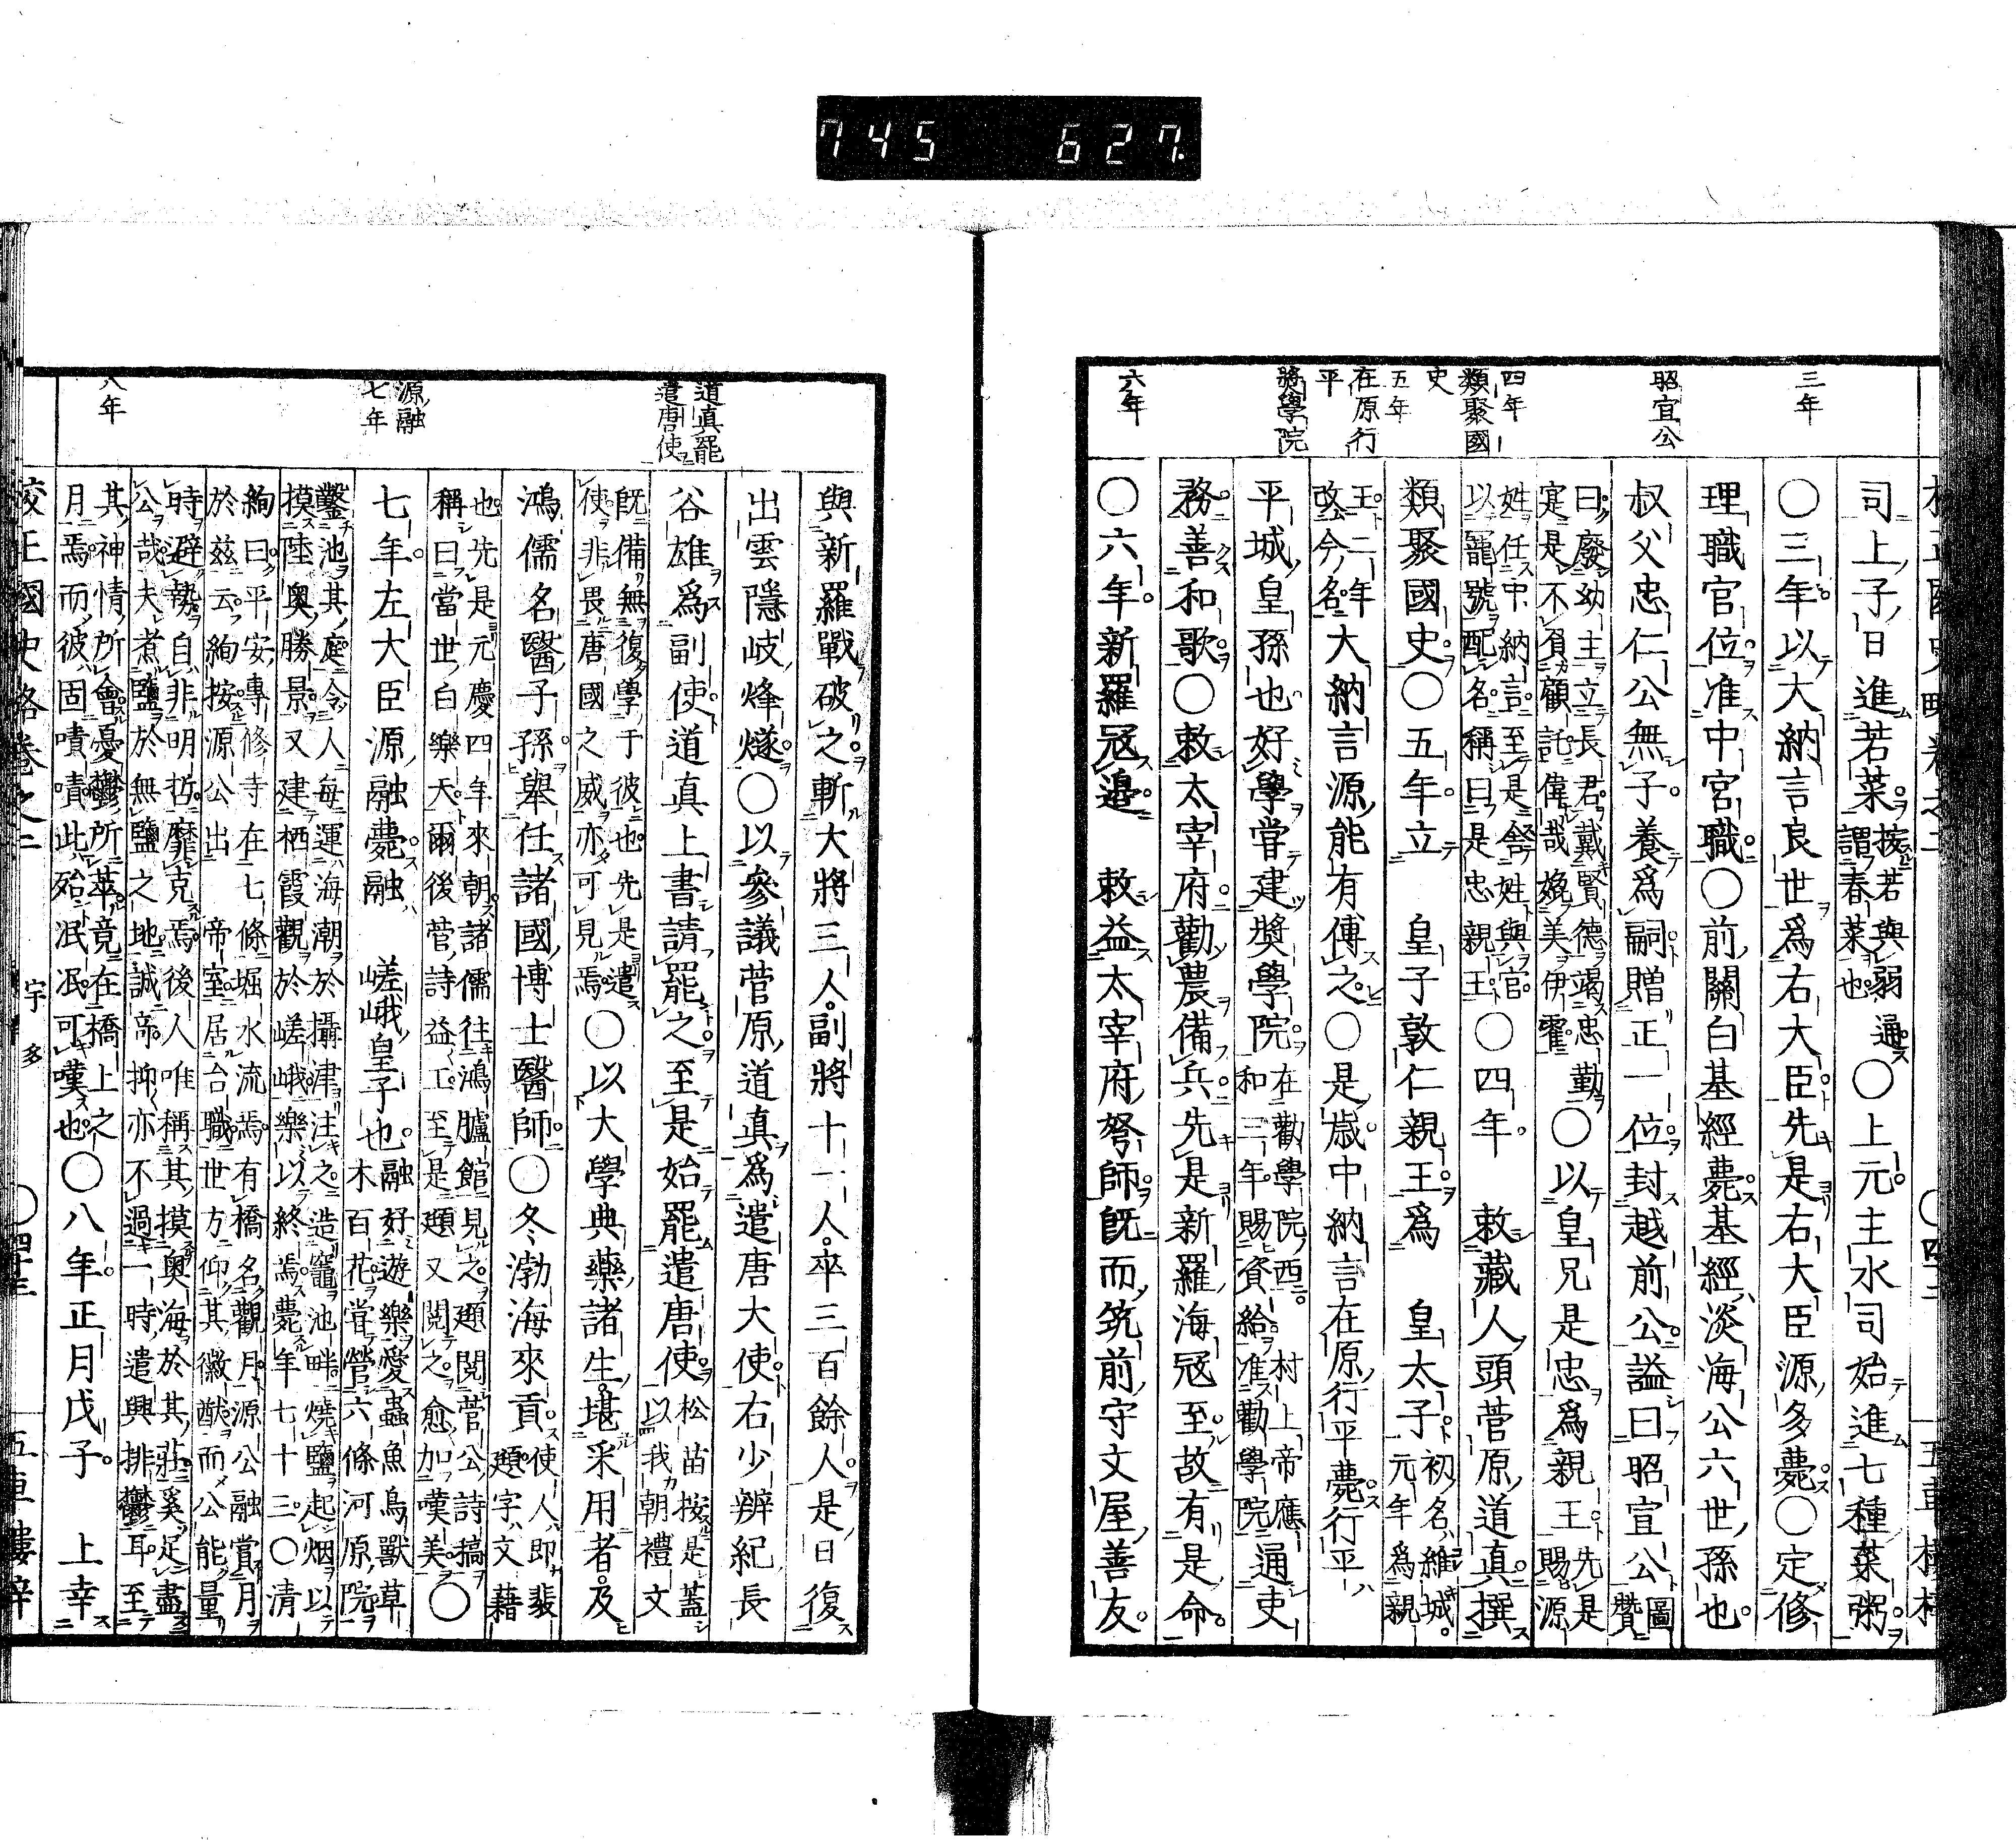 745 627.
三年
昭宣公
四年
類聚國
史
五年
在原行
平
奬學院
六年
司上子日進若菜按若與弱通
謂春菜也〇上元主水司始進七種菜粥
〇三年以大納言良世爲右大臣先是右大臣源多薨〇定修
理職官位准中宮職〇前關白基經薨基經淡海公六世孫也
叔父忠仁公無子養爲嗣贈正一位封越前公謚曰昭宣公圖
贊
曰廢幼主立長君戴賢德竭忠勤
寔是不負顧託偉哉媺美伊霍〇以皇兄是忠爲親王先是
賜源
姓任中納言至是舍姓與官
以寵號配名稱曰是忠親王〇四年 敕藏人頭菅原道真撰
類聚國史〇五年立 皇子敦仁親王爲 皇太子初名維城
元年爲親
王二年
改今名大納言源能有傳之〇是歲中納言在原行平薨行平
平城皇孫也好學嘗建奬學院在勸學院西
和三年賜資給准勸學院村上帝應
通吏
務善和歌〇敕太宰府勸農備兵先是新羅海冦至故有是命
〇六年新羅冦邉 敕益太宰府弩師既而筑前守文屋善友
道真罷
遣唐使
源融
七年
八年
與新羅戰破之斬大將三人副將十一人卒三百餘人是日復
出雲隱岐烽燧〇以參議菅原道真爲遣唐大使右少辨紀長
谷雄爲副使道真上書請罷之至是始罷遣唐使松苗按是蓋
以我朝禮文
既備無復學于彼也先是遣
使非畏唐國之威亦可見焉〇以大學典藥諸生堪采用者及
鴻儒名醫子孫舉任諸國博士醫師〇冬渤海來貢使人即裴
題字文藉
也先是元慶四年來朝諸儒往鴻臚館見之題閲菅公詩搞
稱曰當世白樂天爾後菅詩益工至是題又閲之愈加嘆美〇
七年左大臣源融薨融 嵯峨皇子也融好遊樂愛蟲魚鳥獸草
木百花嘗營六條河原院
鑿池其庭令人每運海潮於攝津注之造竈池畔燒鹽起烟以
摸陸奥勝景又建栖霞觀於嵯峨樂以終焉薨年七十三〇清
絢曰平安專修寺在七條堀水流焉有橋名觀月源公融賞月
於兹云絢按源公出 帝室居台職世方仰其徽猷而公能量
時避勢自非明哲靡克焉後人唯稱其摸奥海於其莊奚足盡
公哉夫煮鹽於無鹽之地誠奇抑亦不過一時遣興排鬱耳至
其神情所會憂鬱所萃竟在橋上之
月焉而彼固嘖嘖此殆泯泯可嘆也〇八年正月戊子 上幸
宇多